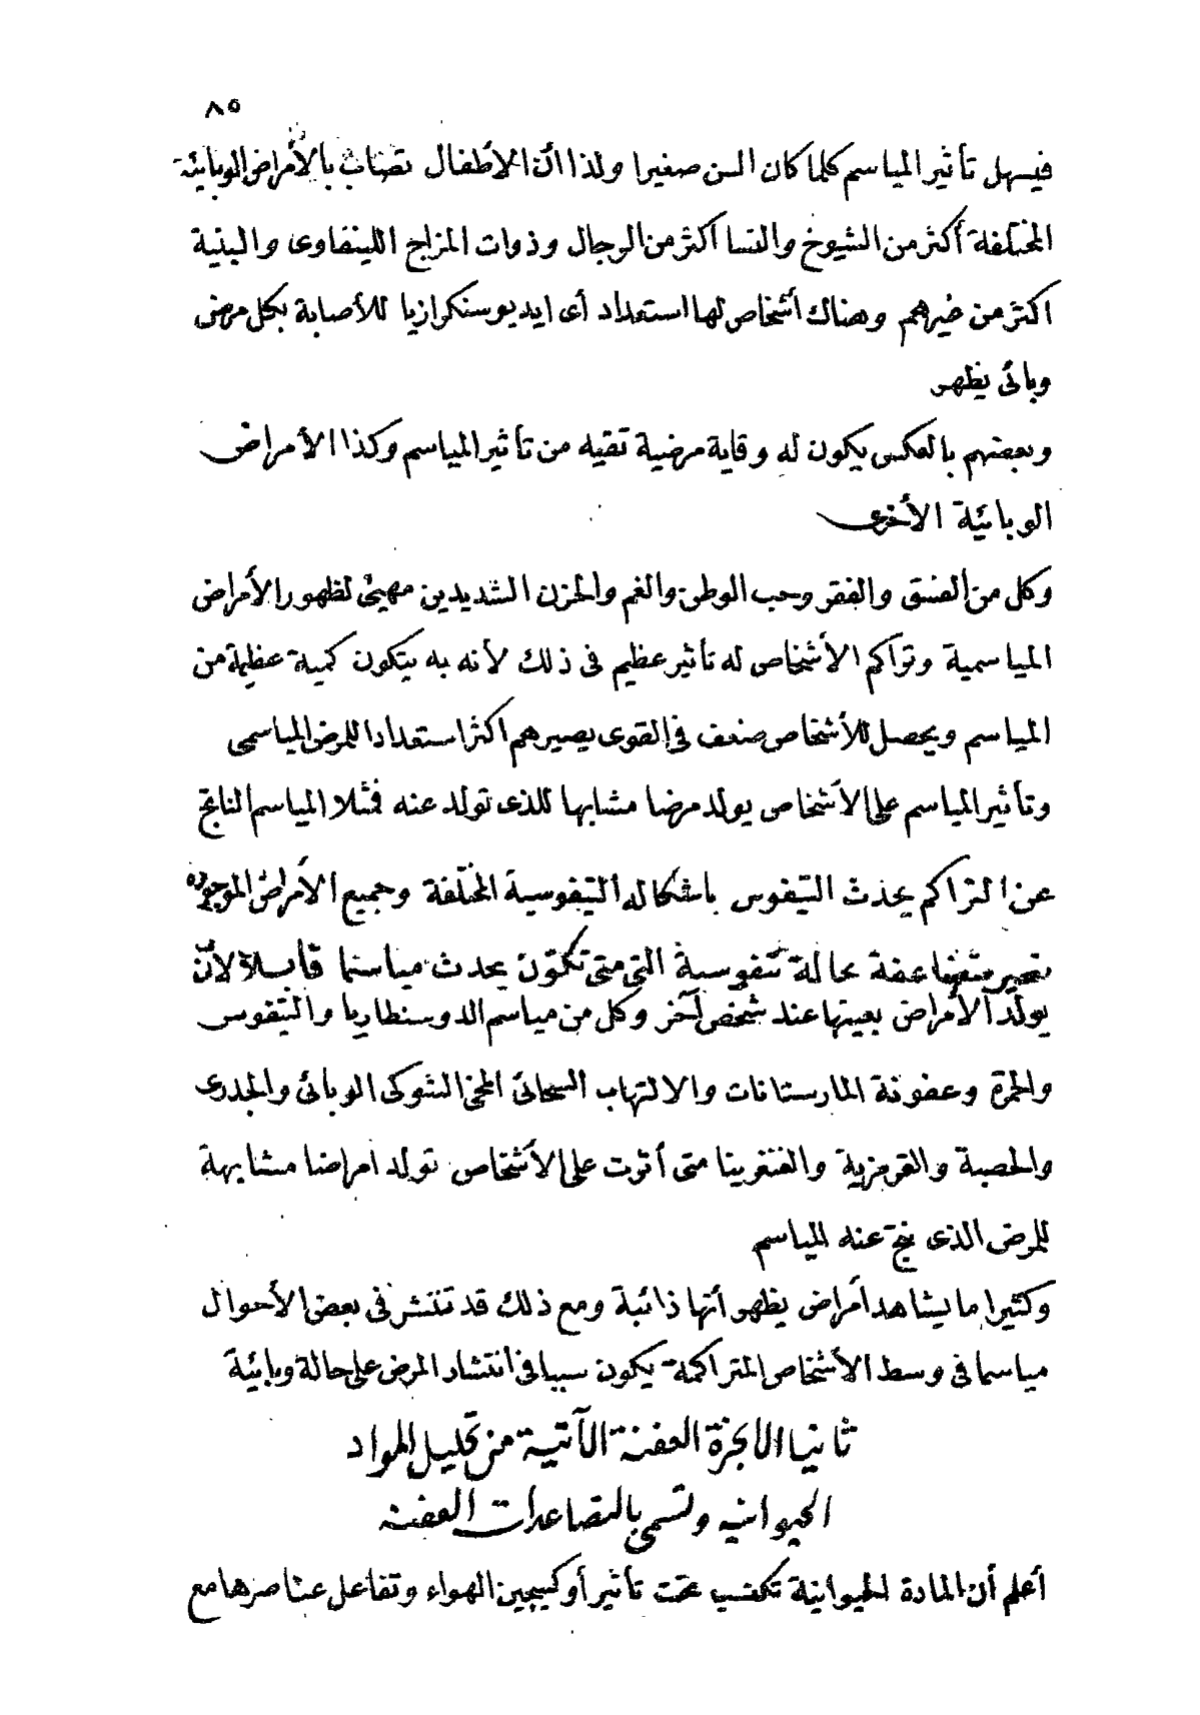 ٨٥
فيسهل تأثير المياسم كلما كان السن صغيرا ولذا أن الأطفال تصاب بالأمراض الوبائية
المختلفة أكثر من الشيوخ والنسا أكثر من الرجال وذوات المزاج اللينفاوى والبنية
اكثر من غيرهم وهناك أشخاص لها استعداد أى ايديوسنكرازيا للأصابة بكل مرض
وبائى يظهر
وبعضهم بالعكس يكون له وقاية مرضية تقيه من تأثير المياسم وكذا الأمراض
الوبائية الأخرى
وكل من الضنق والفقر وحب الوطن والغم والحزن الشديدين مهيئ لظهور الأمراض
المياسمية وتراكم الأشخاص له تأثير عظيم فى ذلك لأنه به يتكون كمية عظيمة من
المياسم ويحصل للأشخاص ضعف فى القوى يصيرهم أكثر استعدادا للمرض المياسمى
وتأثير المياسم على الأشخاص يولد مرضا مشابها للذى تولد عنه فمثلا المياسم الناتج
عن التراكم يحدث التيفوس باشكاله التيفوسية المختلفة وجميع الأمراض الموجوده
تصير متضاعفة بحالة تيفوسية التى متى تكوّن يحدث مياسما قابلا لأن
يولد الأمراض بعينها عند شخص آخر وكل من مياسم الدوسنطاريا والتيفوس
والحمرة وعفونة المارستانات والالتهاب السحائى المخى الشوكى الوبائى والجدرى
والحصبة والقرمزية والغنغرينا متى أثرت على الأشخاص تولد امراضا مشابهة
للمرض الذى نتج عنه المياسم
وكثيرا ما يشاهد أمراض يظهر أنها ذاتية ومع ذلك قد تنتشر فى بعض الأحوال
مياسما فى وسط الأشخاص المتراكمة يكون سببا فى انتشار المرض على حالة وبائية
ثانيا الابخرة العفنة الآتية من تحليل المواد
الحيوانيه وتسمى بالتصاعدات العفنه
أعلم أن المادة الحيوانية تكتسب تحت تأثير أوكسيجين الهواء وتفاعل عناصرها مع